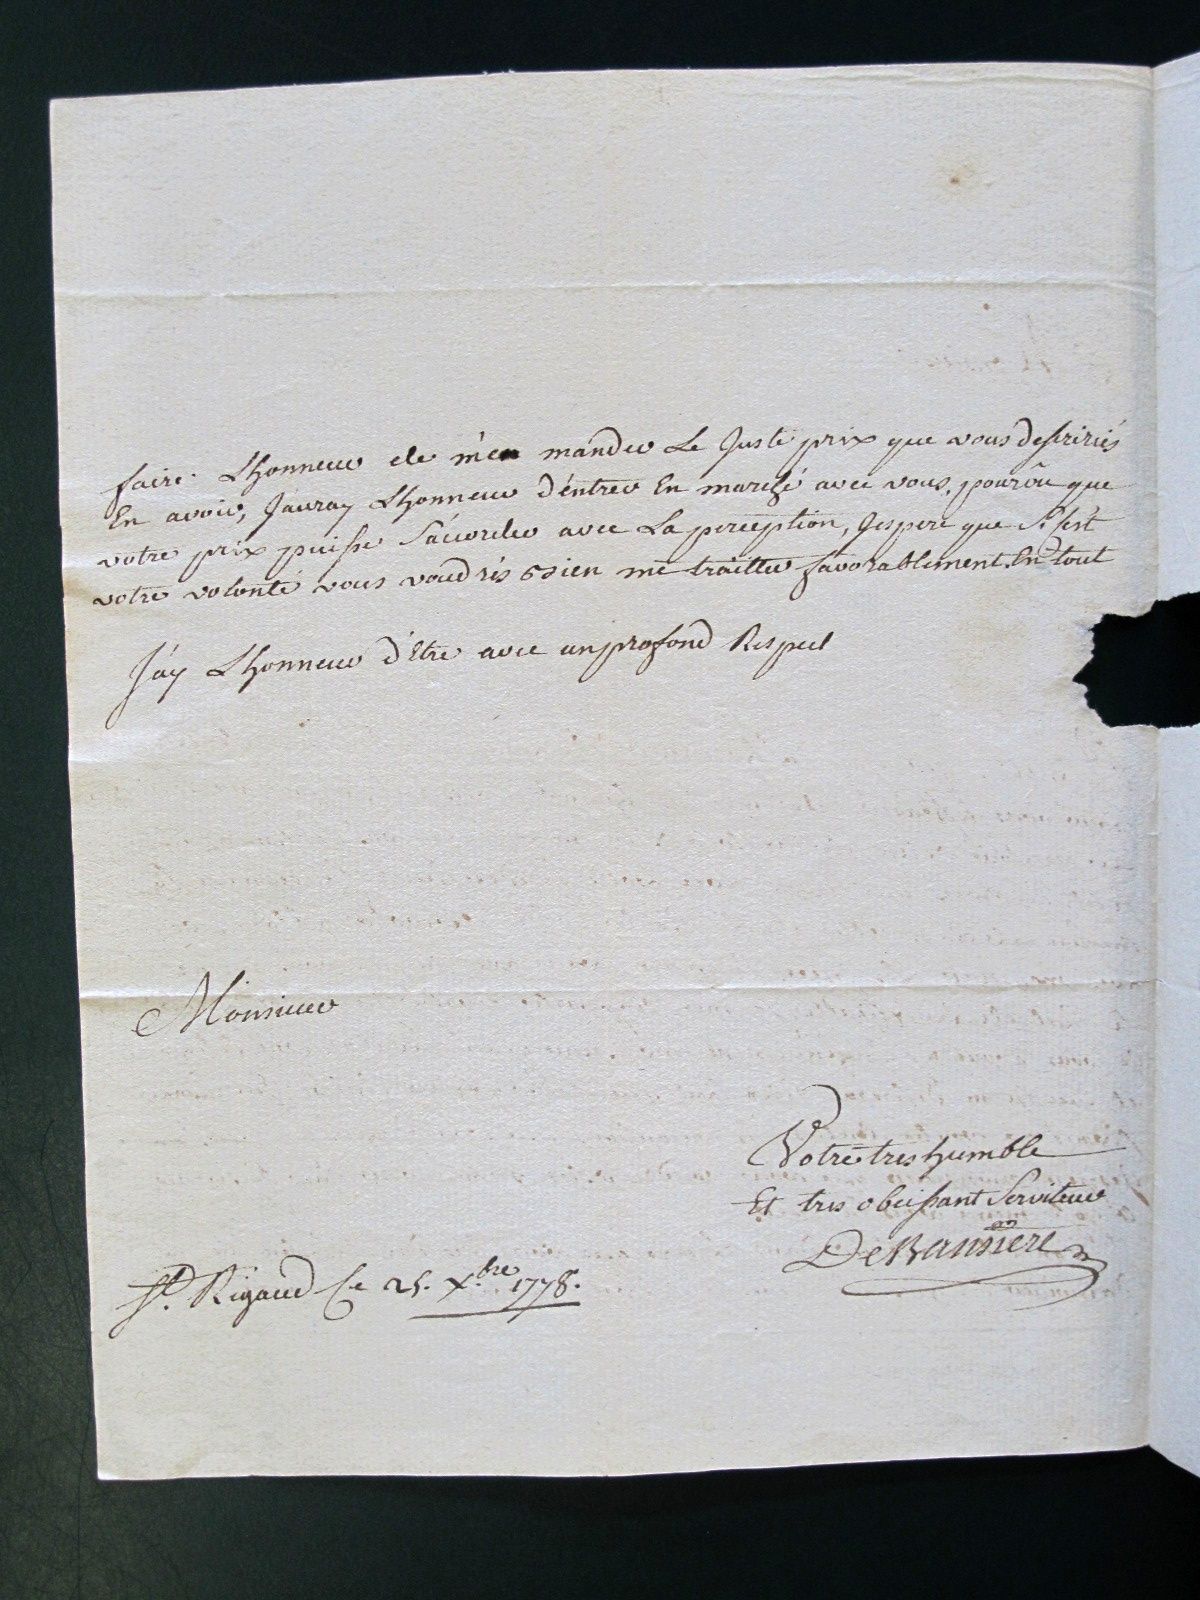 faire Lhonneur de m'en mander Le Juste prix que vous desireriés
En avoir, Jauray Lhonneur d'éntrer En marché avec vous, pourvû que
votre prix puisse S'acorder avec La perception, Jespere que Si s'ést
votre volonté vous voudrés bien me traitter favorablement. En tout
J'ay Lhonneur d'Etre avec un profond Respect
Monsieur
Votre tres humble
Et tres obeissant Serviteur
De Banniere
St. Rigaud Ce 25. Xbre 1778.